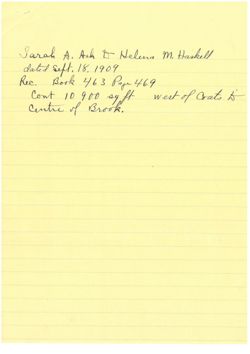 Sarah A. Ash to Helena M. Haskell
dated Sept. 18, 1909
Rec. Book 463 Page 469
Cont 10 900 sq ft west of Coats to
Centre of Brook.